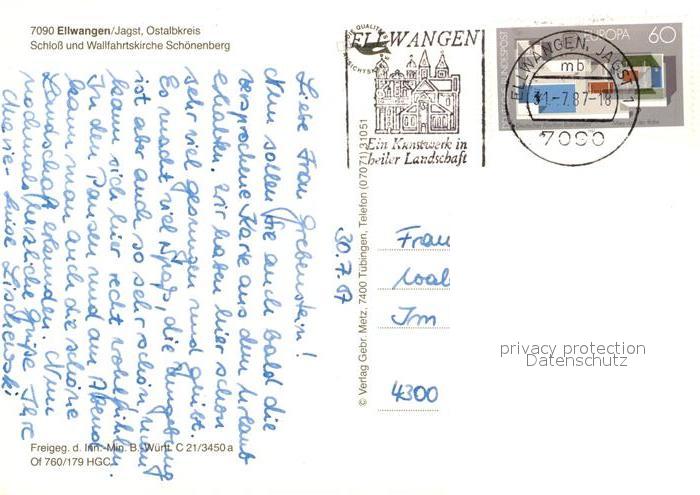 7090 Ellwangen/Jagst, Ostalbkreis
Schloß und Wallfahrtskirche Schönenberg
Liebe Frau Grebenstein!
Nun sollen Sie auch bald die
versprochene Karte aus dem Urlaub
erhalten. Wir haben hier schon
sehr viel gesungen und geübt.
Es macht viel Spaß, die Umgebung
ist aber auch so sehr schön, man
kann sich hier recht wohlfühlen.
In den Pausen und am Abend
kann man auch die schöne
Landschaft erkunden. Nun
nochmals herzliche Grüße Ihre
Marie-Luise Lischewski
Freigeg. d. Inn.-Min. B.-Württ. C 21/3450 a
Of 760/179 HGC
© Verlag Gebr. Metz, 7400 Tübingen, Telefon (07071) 31051
30.7.87
ELLWANGEN
Ein Kunstwerk in
heiler Landschaft
ELLWANGEN, JAGST 1
mb
31.-7.87-18
7090
DEUTSCHE BUNDESPOST
EUROPA
60
Frau
Im
4300
privacy protection
Datenschutz